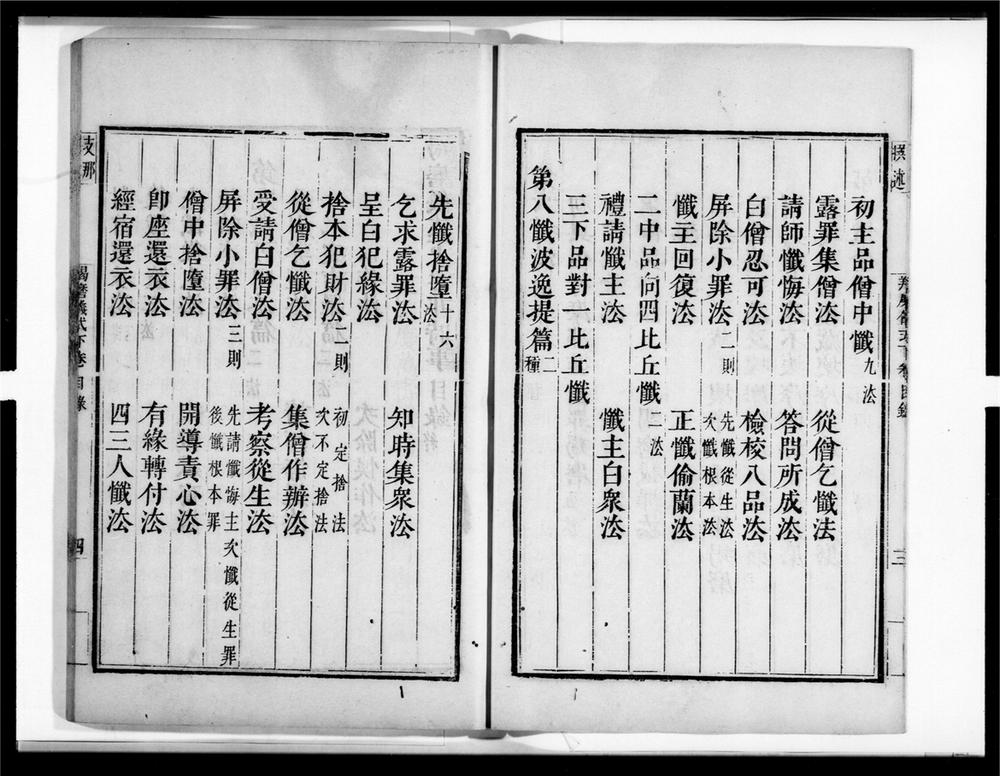 撰述
羯磨儀式下卷目錄
三
初主品僧中懺九法
露罪集僧法　從僧乞懺法
請師懺悔法　答問所成法
白僧忍可法　檢校八品法
屏除小罪法二則　先懺從生法　次懺根本法
懺主回復法　正懺偷蘭法
二中品向四比丘懺二法
禮請懺主法　懺主白衆法
三下品對一比丘懺
第八懺波逸提篇二種
先懺捨墮十六法
乞求露罪法　知時集衆法
呈白犯緣法
捨本犯財法二則　初定捨法　次不定捨法
從僧乞懺法　集僧作辦法
受請白僧法　考察從生法
屏除小罪法三則　先請懺悔主次懺從生罪　後懺根本罪
僧中捨墮法　開導責心法
卽座還衣法　有緣轉付法
經宿還衣法　四三人懺法
支那
羯磨儀式下卷目錄
四